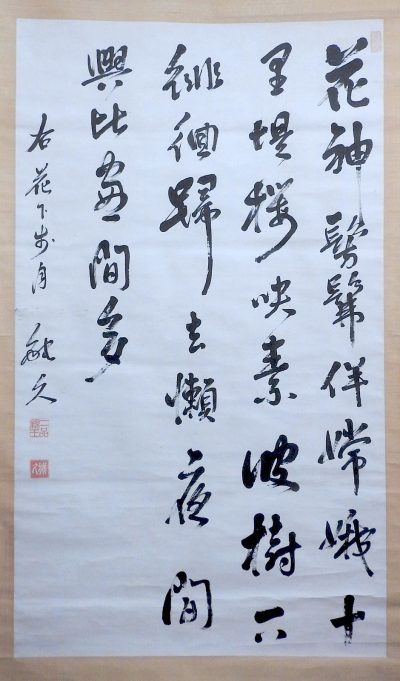 花神髣髴伴嫦娥十
里堤櫻映素波樹下
徘徊歸去懶夜間
興比晝間多
右花下步月